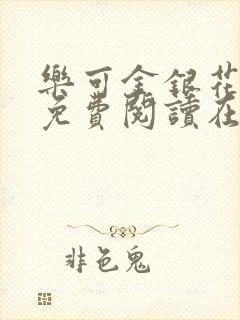 樂可金銀花
免費閱讀在
非色鬼